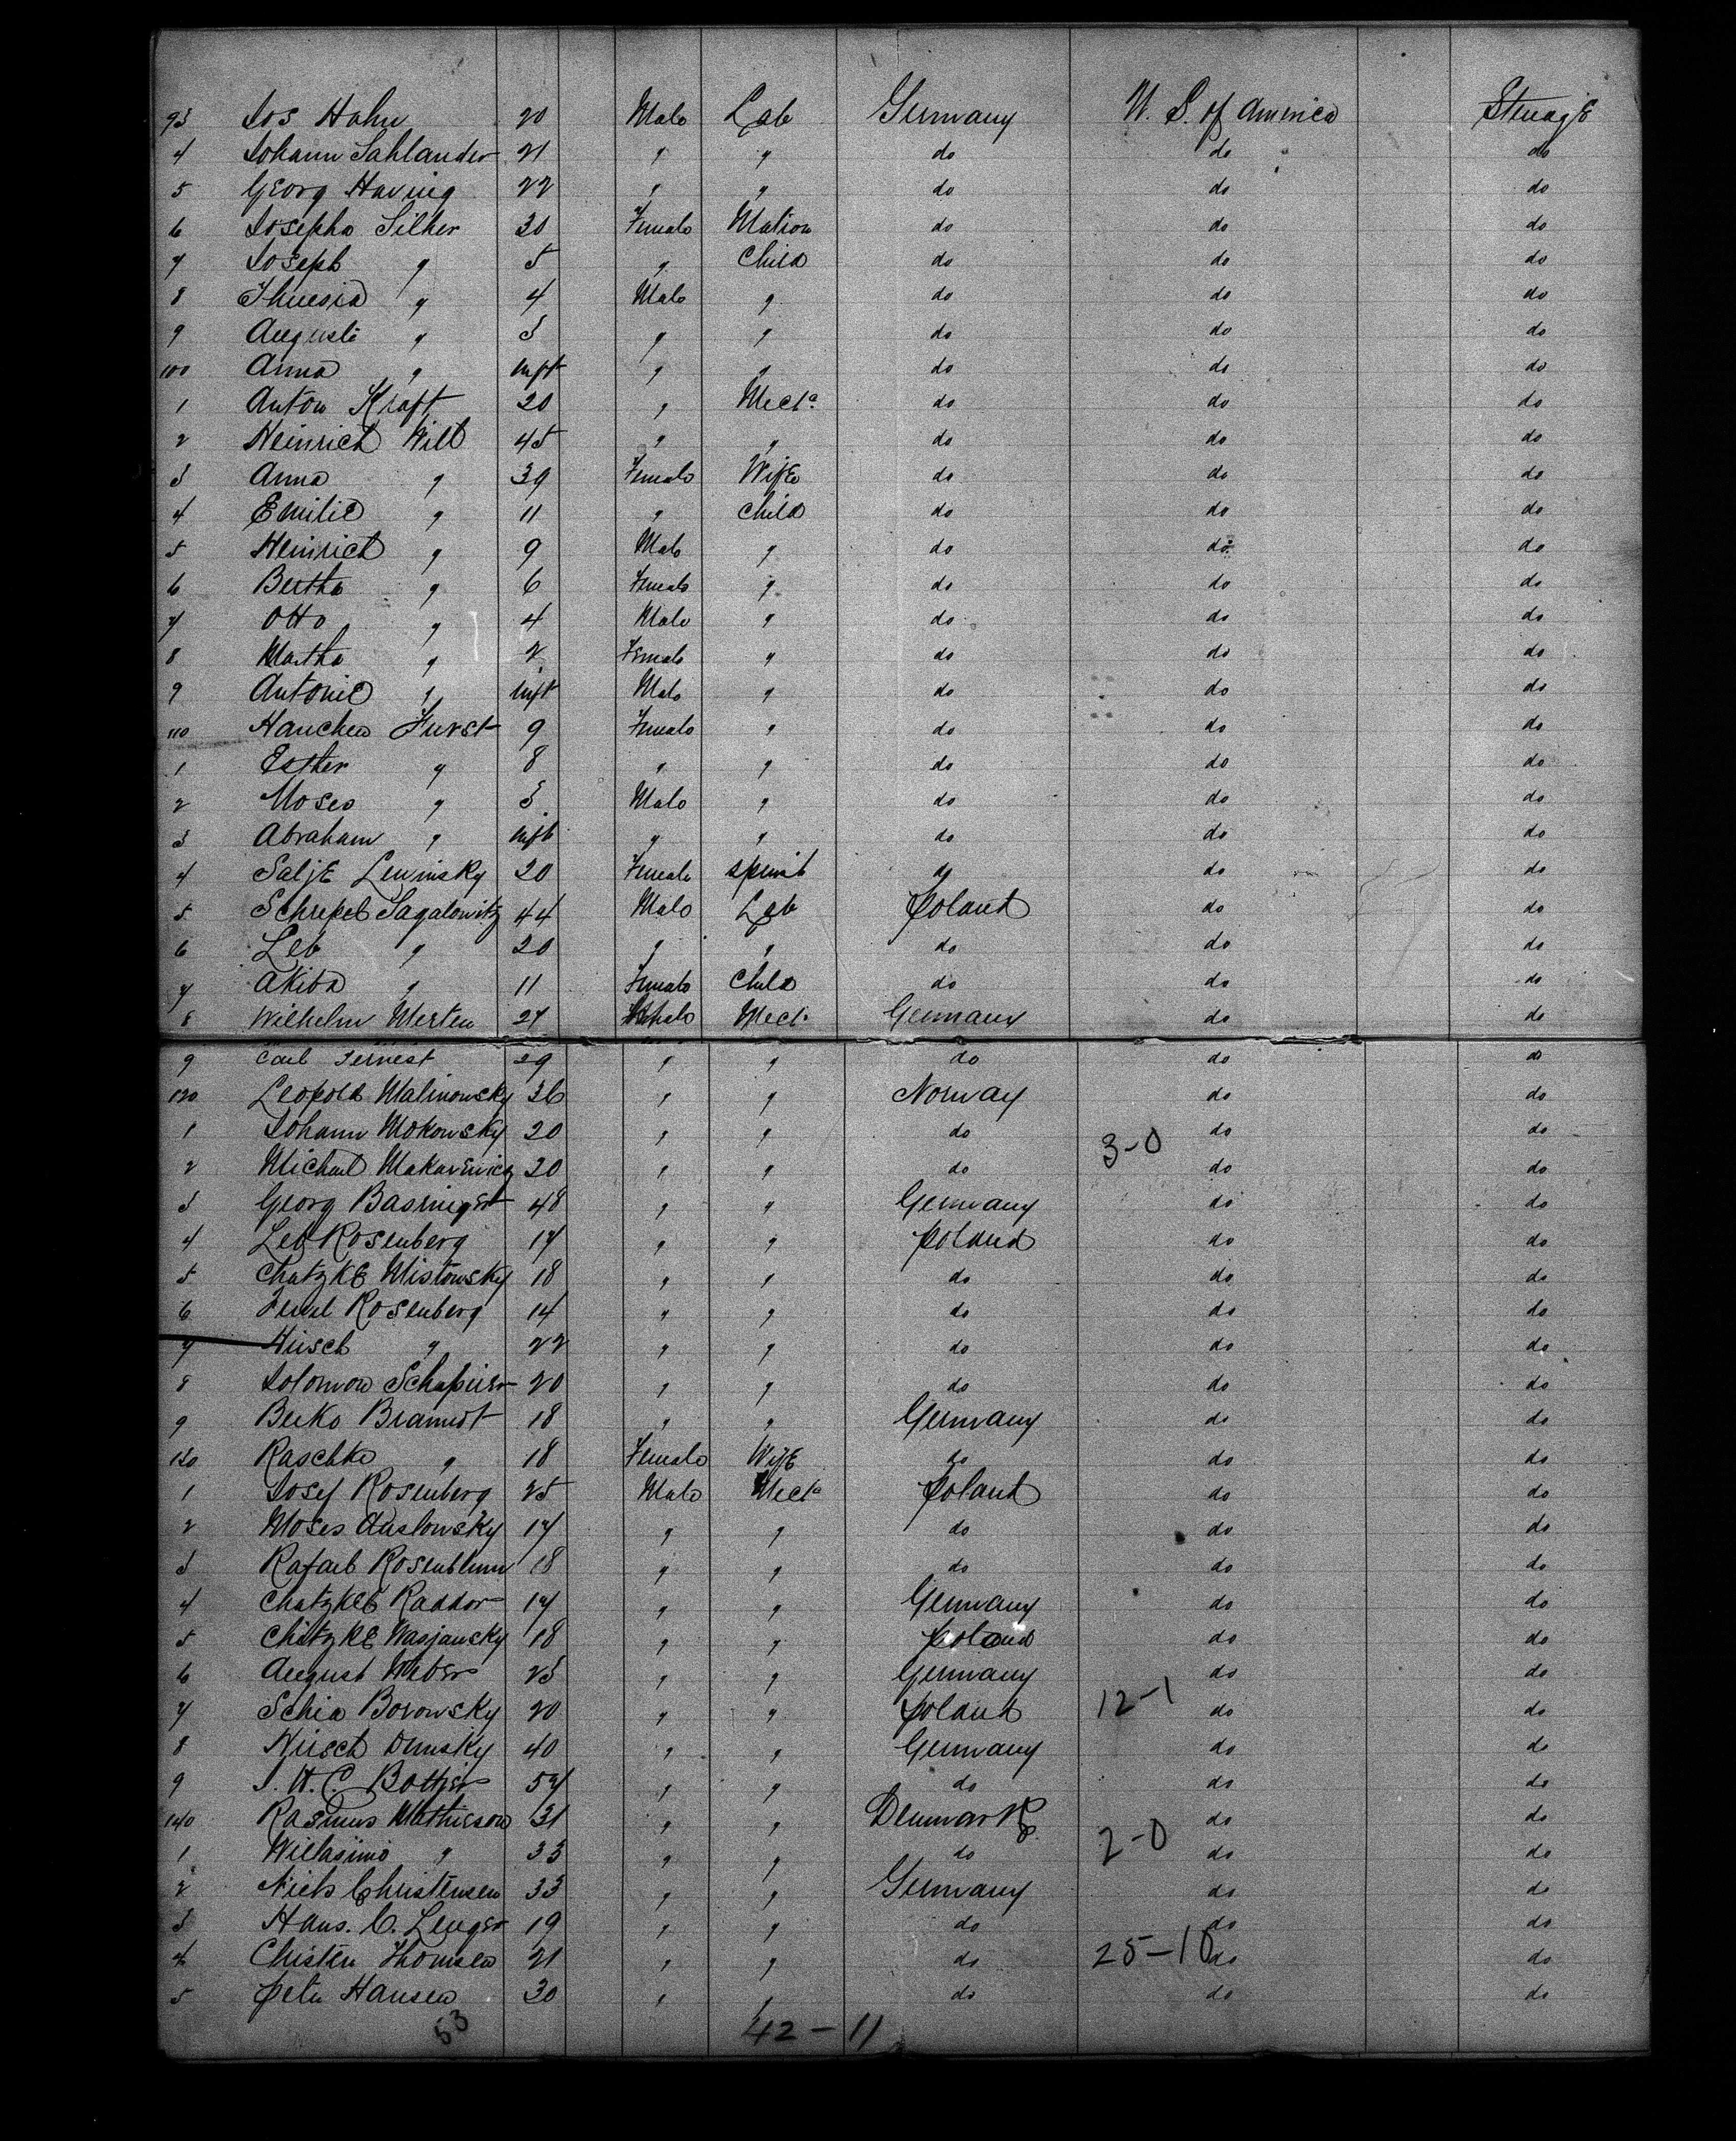 93 Jos Hahn 20 Male Lab Germany U. S. of America Steerage
4 Johann Sahlander 21 " " do do do
5 Georg Having 22 " " do do do
6 Josepha Silher 30 Female Matron do do do
7 Joseph " 5 " Child do do do
8 " 4 Male " do do do
9 Auguste " 3 " " do do do
100 Anna " Inft " " do do do
1 Anton Kraft 20 " Mecha do do do
2 Heinrich Will 45 " " do do do
3 Anna " 39 Female Wife do do do
4 Emilie " 11 " Child do do do
5 Heinrich " 9 Male " do do do
6 Bertha " 6 Female " do do do
7 Otto " 4 Male " do do do
8 Martha " 2 Female " do do do
9 Antonie " Inft Male " do do do
110 Hanchen Furst 9 Female " do do do
1 Esther " 8 " " do do do
2 Moses " 3 Male " do do do
3 Abraham " Inft " " do do do
4 Salje Lewinsky 20 Female Spinst do do do
5 Schepel Sagalowitz 44 Male Lab Poland do do
6 Leb " 20 " " do do do
7 Akiba " 11 Female Child do do do
8 Wilhelm Merten 27 Male Mech Germany do do
9 Carl Fernest 29 " " do do do
120 Leopold Malinowsky 36 " " Norway do do
1 Johann Mokowsky 20 " " do 3-0 do do
2 Michael 20 " " do do do
3 Georg 48 " " Germany do do
4 Leb Rosenberg 17 " " Poland do do
5 Chatzke Mistowsky 18 " " do do do
6 Rosenberg 14 " " do do do
7 Hirsch " 22 " " do do do
8 Solomon Schapirer 20 " " do do do
9 Berko Bramdt 18 " " Germany do do
130 Raschke " 18 Female Wife do do do
1 Josef Rosenberg 25 Male Mecha Poland do do
2 Moses 17 " " do do do
3 Rafael Rosenblum 18 " " do do do
4 Chatzkel Raddor 17 " " Germany do do
5 Chatzke Wasjansky 18 " " Poland do do
6 August Weber 23 " " Germany do do
7 Schia Borowsky 20 " " Poland 12-1 do do
8 Hirsch Dunsky 40 " " Germany do do
9 J. H. C. Bottjer 57 " " do do do
140 Rasmus Mathieson 31 " " Denmark do do
1 Willasimo " 33 " " do 2-0 do do
2 Niels Christensen 33 " " Germany do do
3 Hans. C. Lenger 19 " " do do do
4 Christen Thomsen 21 " " do 25-10 do do
5 Peter Hansen 30 " " do do do
53 42-11